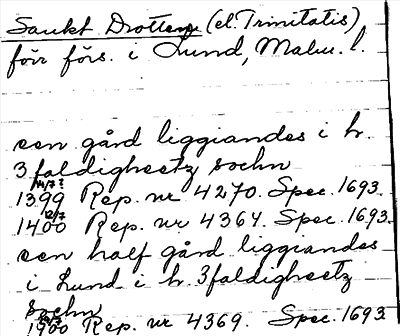 Sankt Drotten (el. Trinitatis)
förr förs. i Lund, Malm. l.
een gård liggiandes i h.
3faldigheetz sochn
14/7?
1399 Rep. nr 4270. Spec. 1693.
12/7
1400 Rep. nr 4364. Spec. 1693.
een half gård liggiandes
i Lund i h. 3faldigheetz
sochn
1400 Rep. nr 4369. Spec. 1693